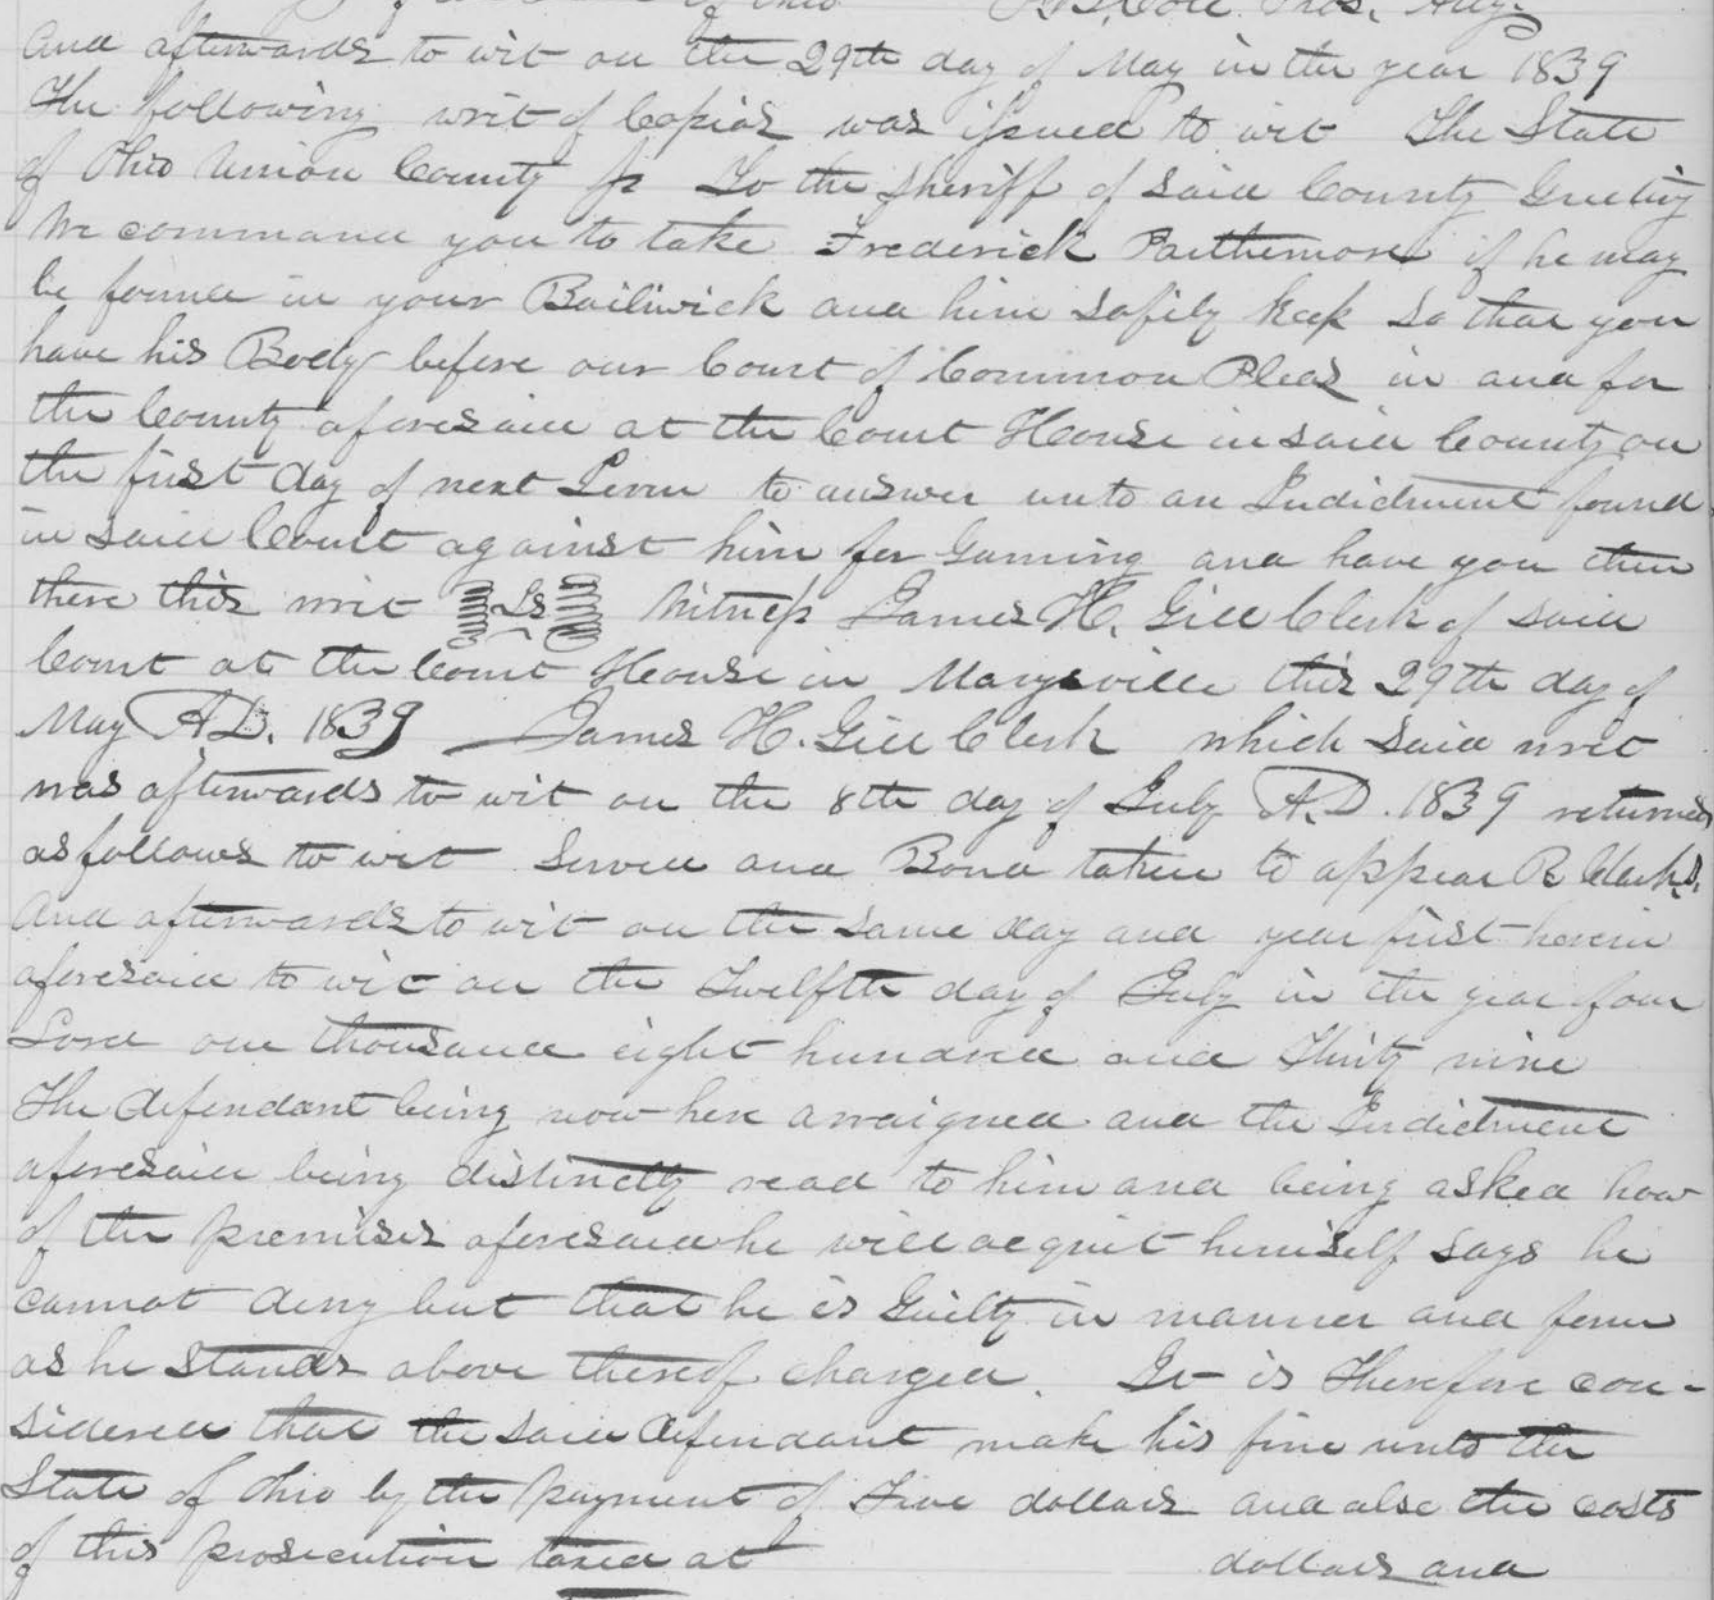 of Ohio P.B. Cole Pros. Atty.
And afterwards to wit on the 29th day of May in the year 1839
The following writ of Capias was issued to wit The State
of Ohio Union County ss To the Sheriff of said County Greeting
We command you to take Frederick Parthemore if he may
be found in your Bailiwick and him safily keep so that you
have his Body before our Court of Common Pleas in and for
the County aforesaid at the Court House in said County on
the first day of next Term to answer unto an Indictment found
in said Court against him for Gaming and have you then
there this writ LS Witness James H. Gill Clerk of said
Court at the Court House in Marysville this 29th day of
May A.D. 1839 James H. Gill Clerk which said writ
was afterwards to wit on the 8th day of July A.D. 1839 returned
as follows to wit Served and Bond taken to appear R Clark S.
And afterwards to wit on the same day and year first herein
aforesaid to wit on the Twelfth day of July in the year of our
Lord one thousand eight hundred and Thirty nine
The defendant being now here arraigned and the Indictment
aforesaid being distinctly read to him and being asked how
of the premises aforesaid he will acquit himself says he
cannot deny but that he is Guilty in manner and form
as he stands above thereof charged. It is Therefore con-
sidered that the said defendant make his fine unto the
State of Ohio by the payment of Five dollars and also the costs
of this prosecution taxed at dollars and